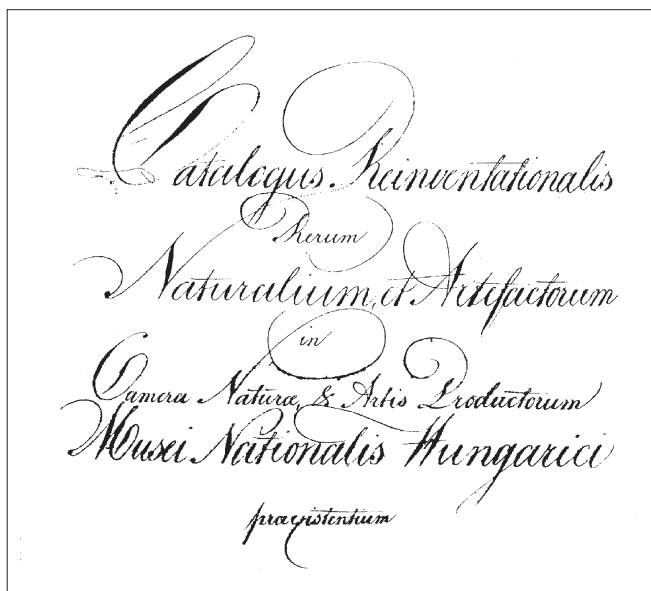 Catalogus Reinventationalis
Rerum
Naturalium, et Artefactorum
in
Camera Naturæ, & Artis Productorum
Musei Nationalis Hungarici
præexistentium